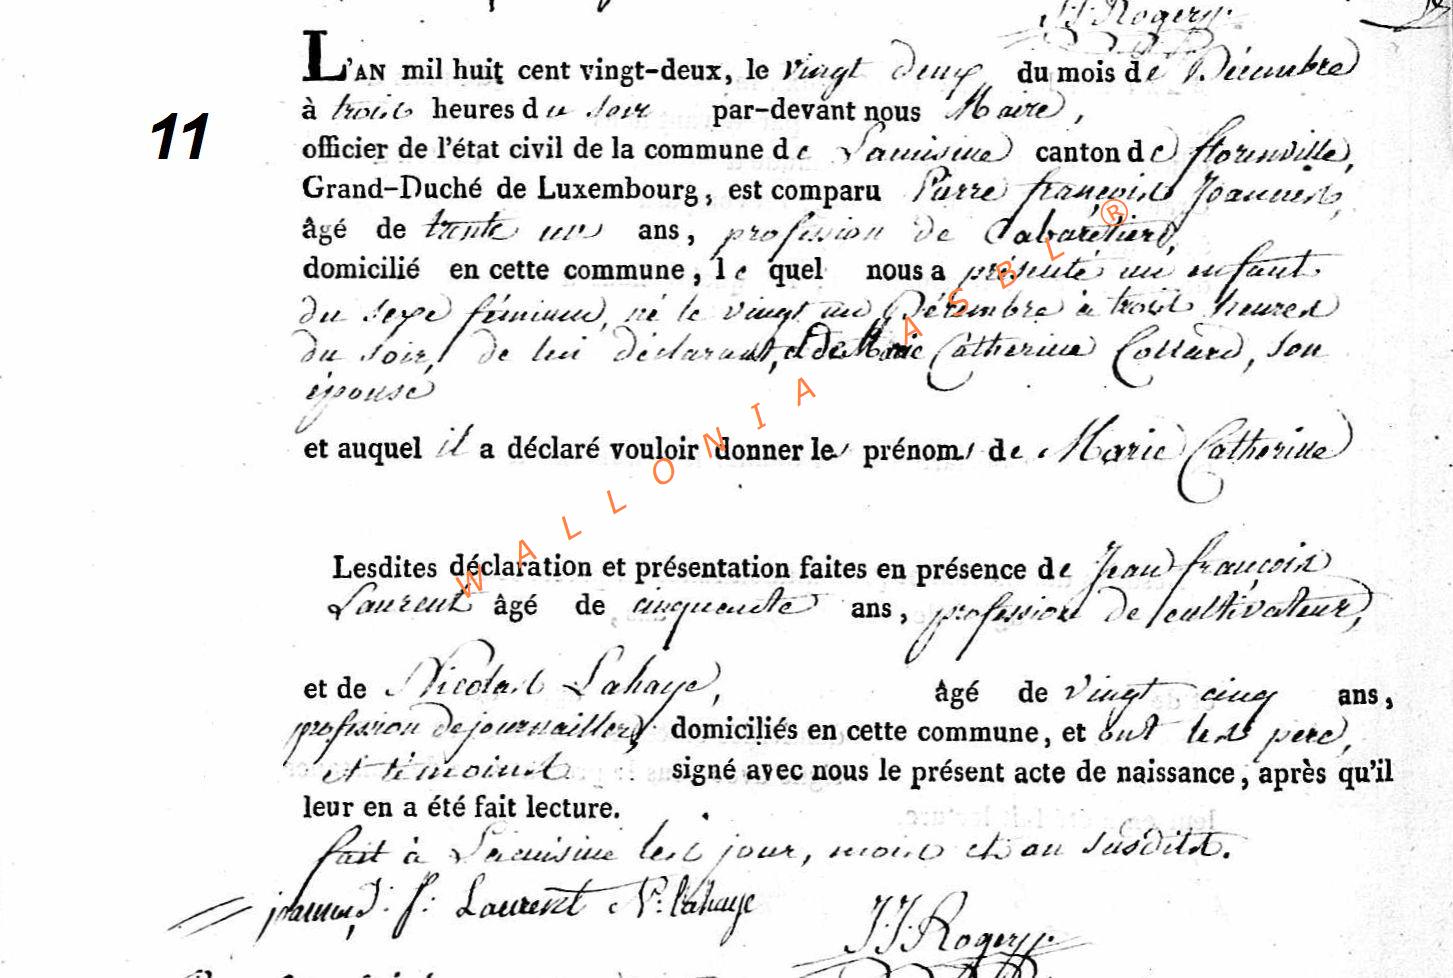 J.J. Rogery.
L'AN mil huit cent vingt-deux, le vingt deux du mois de Décembre
11
à trois heures du soir par-devant nous Maire,
officier de l'état civil de la commune de Lacuisine canton de florenville,
Grand-Duché de Luxembourg, est comparu Pierre françois Joannes,
âgé de trente un ans, profession de Cabaretier,
domicilié en cette commune, lequel nous a présenté un enfant
du sexe féminin, né le vingt un Décembre à trois heures
du soir, de lui déclarant, et de Marie Catherine Collard, son
épouse
et auquel il a déclaré vouloir donner les prénoms de Marie Catherine
WALLONIA ASBL ®
Lesdites déclaration et présentation faites en présence de Jean françois
Laurent âgé de cinquante ans, profession de cultivateur,
et de Nicolas Lahaye, âgé de vingt cinq ans,
profession de journaillier, domiciliés en cette commune, et ont les père,
et témoins signé avec nous le présent acte de naissance, après qu'il
leur en a été fait lecture.
fait à Lacuisine les jour, mois et an susdits.
j. f. Laurent N. Lahaye
J.J. Rogery.